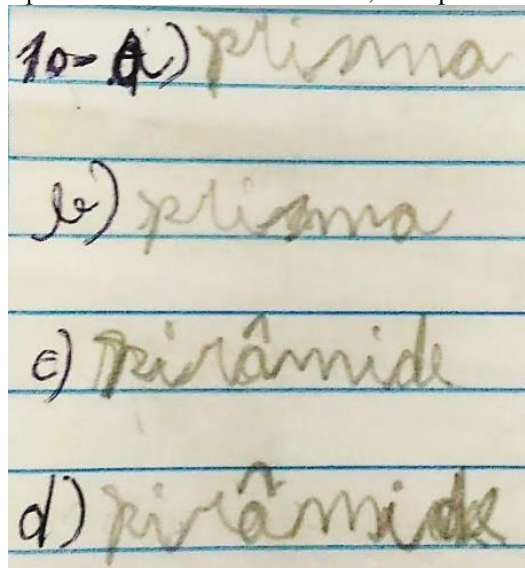 10- A) prisma
b) prisma
c) pirâmide
d) pirâmide